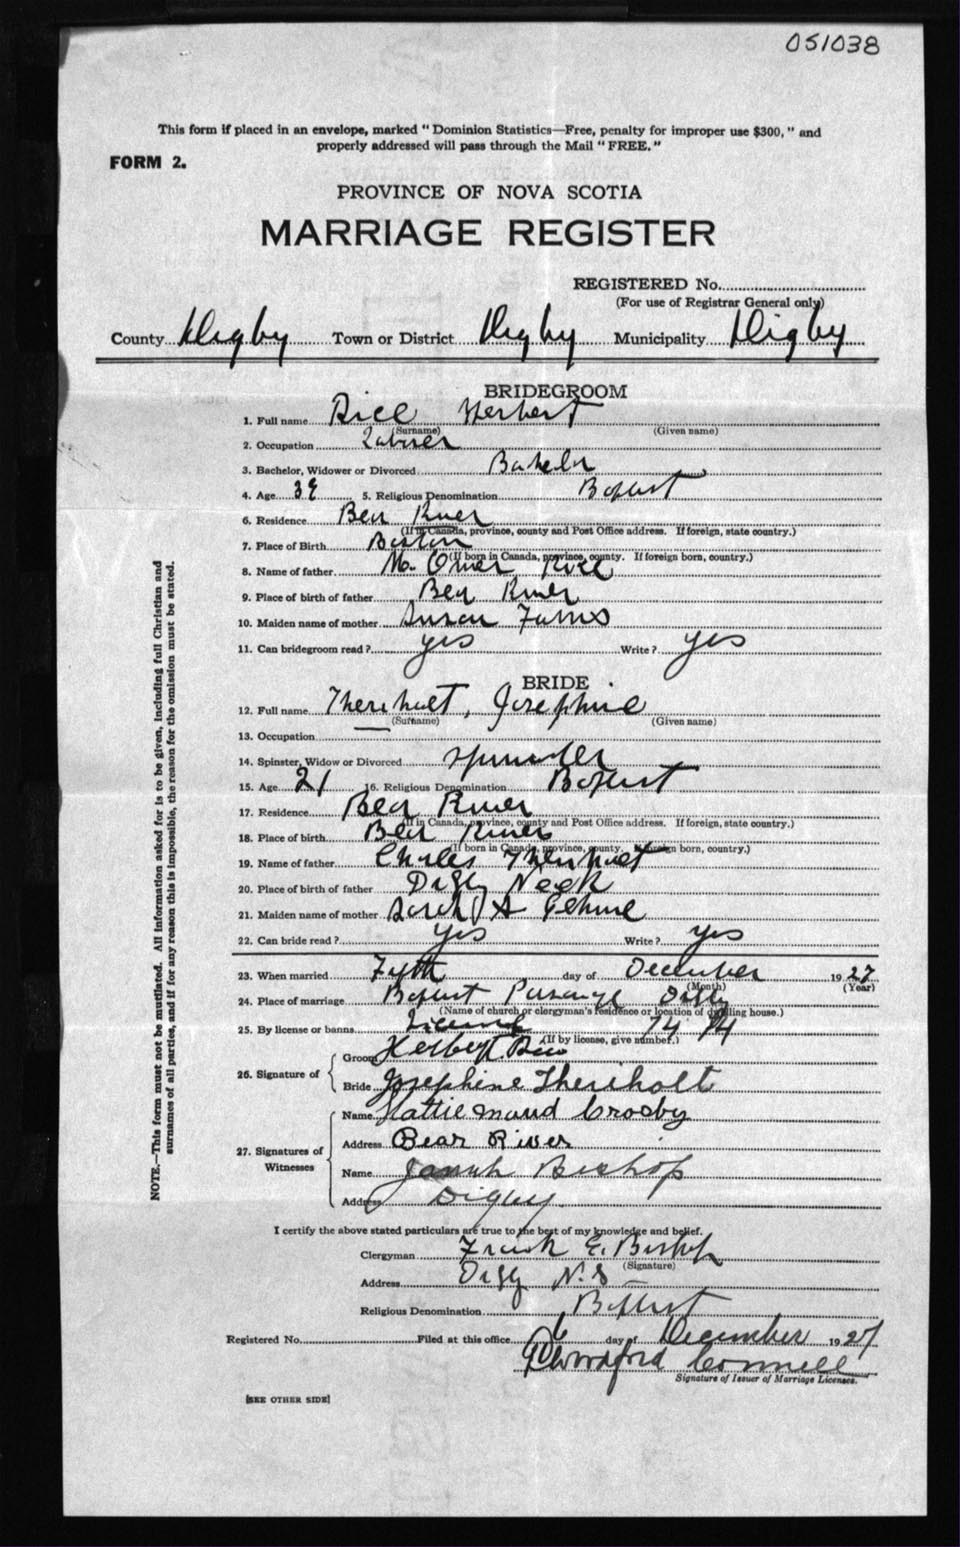 051038
This form if placed in an envelope, marked "Dominion Statistics—Free, penalty for improper use $300," and
properly addressed will pass through the Mail "FREE."
FORM 2.
PROVINCE OF NOVA SCOTIA
MARRIAGE REGISTER
REGISTERED No.
(For use of Registrar General only)
County Digby Town or District Digby Municipality Digby
BRIDEGROOM
1. Full name Rice Herbert
(Surname) (Given name)
2. Occupation Laborer
3. Bachelor, Widower or Divorced Bachelor
4. Age 39 5. Religious Denomination Baptist
6. Residence Bear River
(If in Canada, province, county and Post Office address. If foreign, state country.)
7. Place of Birth Boston
(If born in Canada, province, county. If foreign born, country.)
8. Name of father Omer Rice
9. Place of birth of father Bear River
10. Maiden name of mother Susan
11. Can bridegroom read? yes Write? yes
BRIDE
12. Full name Theriholt, Josephine
(Surname) (Given name)
13. Occupation
14. Spinster, Widow or Divorced Spinster
15. Age 21 16. Religious Denomination Baptist
17. Residence Bear River
(If in Canada, province, county and Post Office address. If foreign, state country.)
18. Place of birth Bear River
(If born in Canada, province, county. If foreign born, country.)
19. Name of father Charles Theriholt
20. Place of birth of father Digby Neck
21. Maiden name of mother Sarah A
22. Can bride read? yes Write? yes
23. When married Fifth day of December 1927
(Month) (Year)
24. Place of marriage Baptist Parsonage Digby
(Name of church or clergyman's residence or location of dwelling house.)
25. By license or banns License 74 74
(If by license, give number.)
26. Signature of
Groom Herbert Rice
Bride Josephine Theriholt
27. Signatures of Witnesses
Name Hattie Maud Crosby
Address Bear River
Name Bishop
Address Digby
I certify the above stated particulars are true to the best of my knowledge and belief.
Clergyman Frank E. Bishop
(Signature)
Address Digby N.S
Religious Denomination Baptist
Registered No. Filed at this office 6 day of December 1927
Connell
Signature of Issuer of Marriage Licenses.
[SEE OTHER SIDE]
NOTE.—This form must not be mutilated. All information asked for is to be given, including full Christian and
surnames of all parties, and if for any reason this is impossible, the reason for the omission must be stated.